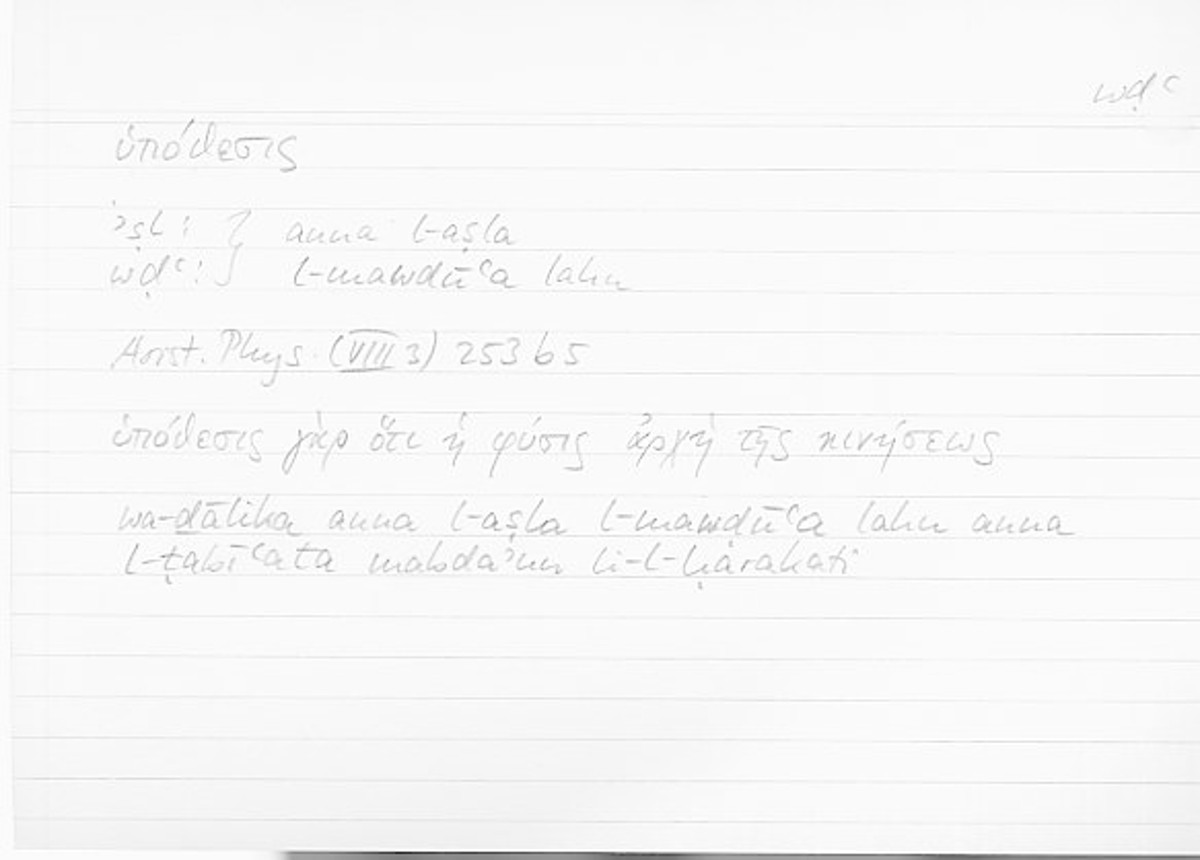 wḍʿ
ὑπόθεσις
ʾṣl: } anna l-aṣla
wḍʿ: } l-mawḍūʿa lahu
Arist. Phys. (VIII 3) 253 b 5
ὑπόθεσις γὰρ ὅτι ἡ φύσις ἀρχὴ τῆς κινήσεως
wa-ḏālika anna l-aṣla l-mawḍūʿa lahu anna
l-ṭabīʿata mabdaʾun li-l-ḥarakati